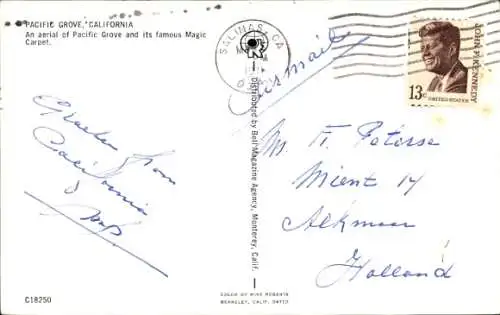 PACIFIC GROVE, CALIFORNIA
An aerial of Pacific Grove and its famous Magic
Carpet.
SALINAS, CA
Airmail
JOHN F. KENNEDY
13c
UNITED STATES
from
California
Distributed by Bell Magazine Agency, Monterey, Calif.
Mient 14
Alkmaar
Holland
C18250
COLOR BY MIKE ROBERTS
BERKELEY, CALIF. 94710